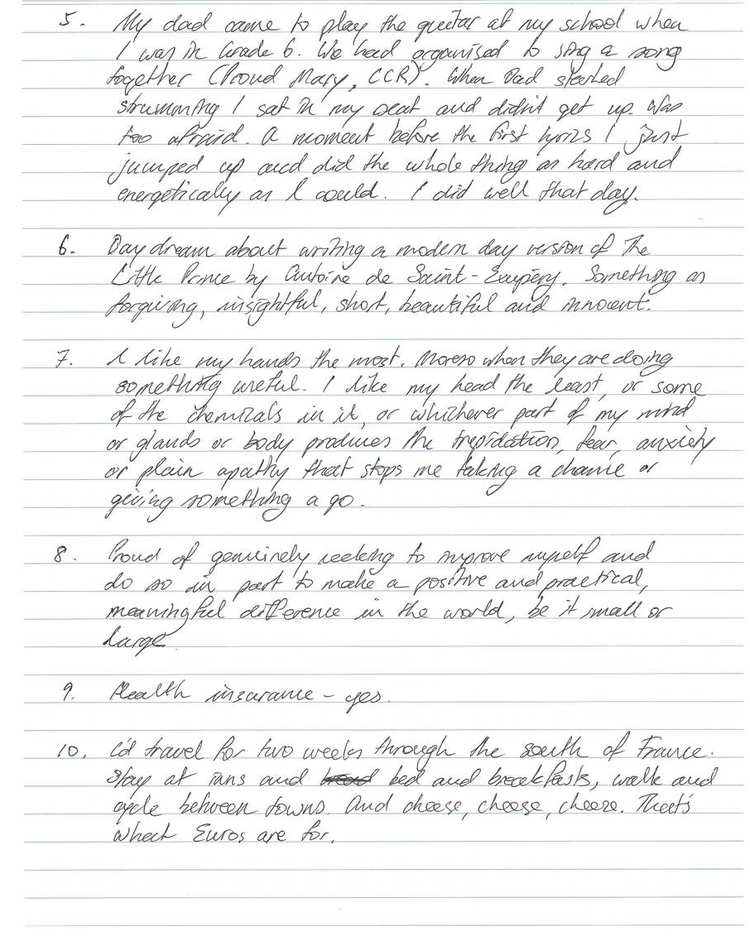 5. My dad came to play the guitar at my school when
I was in Grade 6. We had organised to sing a song
together (Proud Mary, CCR). When Dad started
strumming I sat in my seat and didn't get up. Was
too afraid. A moment before the first lyrics I just
jumped up and did the whole thing as hard and
energetically as I could. I did well that day.
6. Day dream about writing a modern day version of The
Little Prince by Antoine de Saint-Exupéry. Something as
forgiving, insightful, short, beautiful and innocent.
7. I like my hands the most. Moreso when they are doing
something useful. I like my head the least, or some
of the chemicals in it, or whichever part of my mind
or glands or body produces the trepidation, fear, anxiety
or plain apathy that stops me taking a chance or
giving something a go.
8. Proud of genuinely seeking to improve myself and
do so in part to make a positive and practical,
meaningful difference in the world, be it small or
large.
9. Health insurance - yes.
10. I'd travel for two weeks through the south of France.
Stay at inns and bed and breakfasts, walk and
cycle between towns. And cheese, cheese, cheese. That's
what Euros are for.